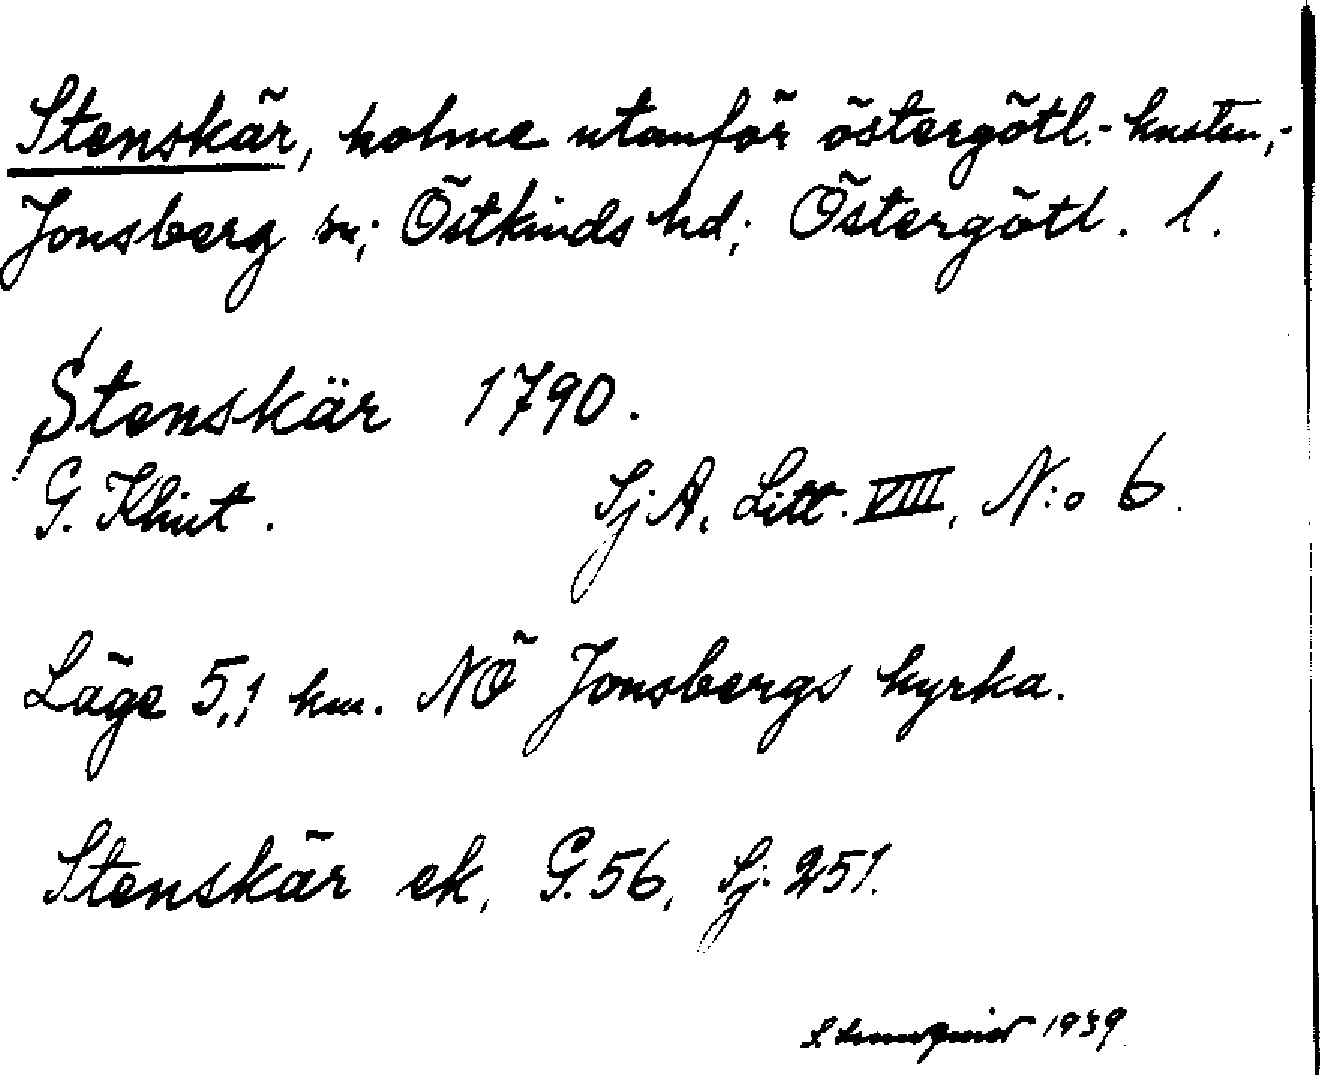 Stenskär, holme utanför östergötl.-kusten,-
Jonsberg sn; Östkinds hd; Östergötl. l.
Stenskär 1790.
G. Klint. Sj A. Litt. VIII, N:o 6.
Läge 5,1 km. NÖ Jonsbergs kyrka.
Stenskär ek, G. 56, Sj. 251.
1939